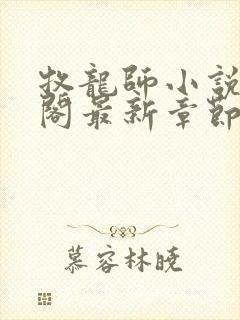 牧龍師小說
閣最新章節
慕容林曉